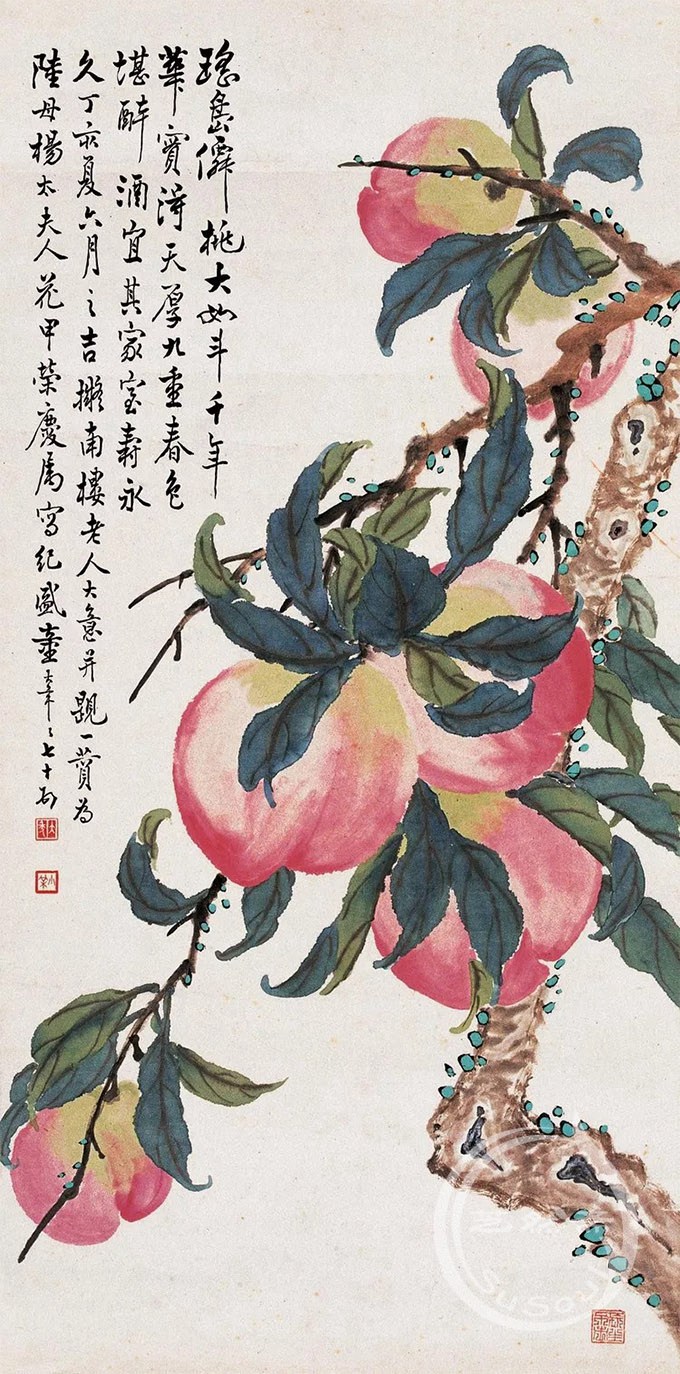 瑤島僊桃大如斗千年
華實得天厚九重春色
堪醉酒宜其家室壽永
久丁亥夏六月之吉擬南樓老人大意并題一贊為
陸母楊太夫人花甲榮慶屬寫紀盛 年七十
SuSou